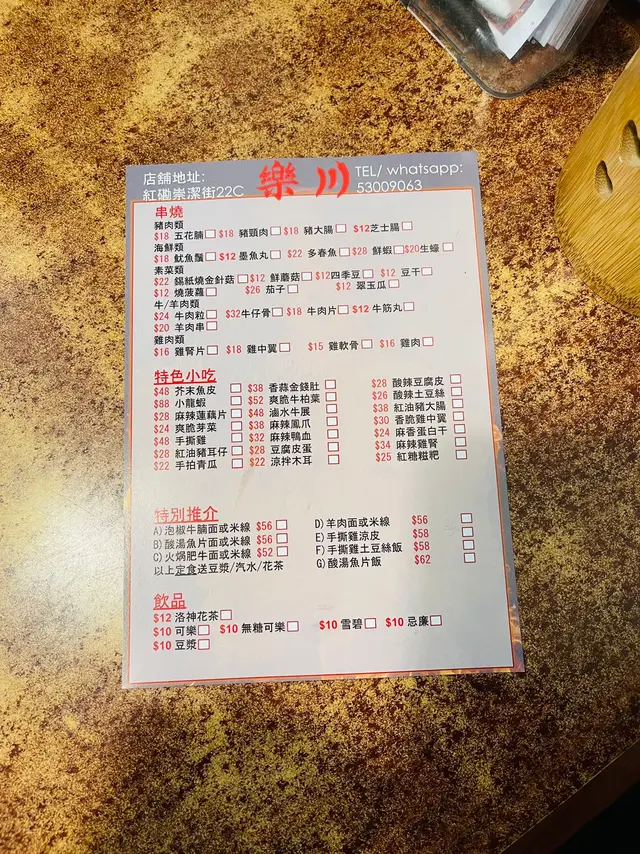 店舖地址:
紅磡崇潔街22C
樂川
TEL/ whatsapp:
53009063
串燒
豬肉類
$18 五花腩 $18 豬頸肉 $18 豬大腸 $12芝士腸
海鮮類
$18 魷魚鬚 $12 墨魚丸 $22 多春魚 $28 鮮蝦 $20生蠔
素菜類
$22 錫紙燒金針菇 $12 鮮蘑菇 $12四季豆 $12 豆干
$12 燒菠蘿 $26 茄子 $12 翠玉瓜
牛/羊肉類
$24 牛肉粒 $32牛仔骨 $18 牛肉片 $12 牛筋丸
$20 羊肉串
雞肉類
$16 雞腎片 $18 雞中翼 $15 雞軟骨 $16 雞肉
特色小吃
$48 芥末魚皮 $38 香蒜金錢肚 $28 酸辣豆腐皮
$88 小龍蝦 $52 爽脆牛柏葉 $26 酸辣土豆絲
$28 麻辣蓮藕片 $48 滷水牛展 $38 紅油豬大腸
$24 爽脆芽菜 $38 麻辣鳳爪 $30 香脆雞中翼
$48 手撕雞 $32 麻辣鴨血 $24 麻香蛋白干
$28 紅油豬耳仔 $28 豆腐皮蛋 $34 麻辣雞腎
$22 手拍青瓜 $22 涼拌木耳 $25 紅糖糍粑
特別推介
A)泡椒牛腩面或米線 $56 D)羊肉面或米線 $56
B)酸湯魚片面或米線 $56 E)手撕雞涼皮 $58
C)火焗肥牛面或米線 $52 F)手撕雞土豆絲飯 $58
以上定食送豆漿/汽水/花茶 G)酸湯魚片飯 $62
飲品
$12 洛神花茶
$10 可樂 $10 無糖可樂 $10 雪碧 $10 忌廉
$10 豆漿